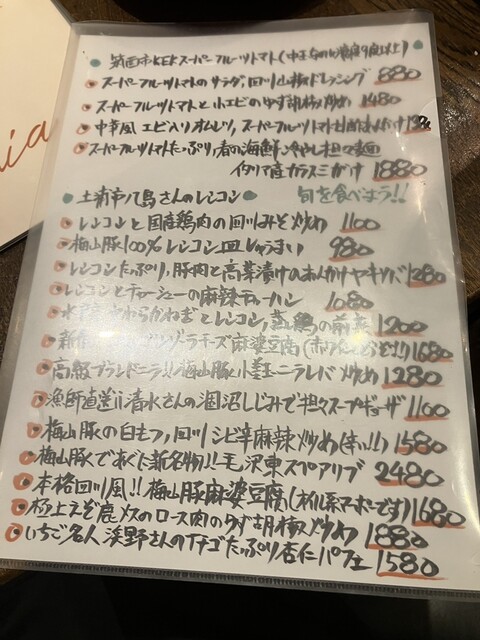 筑西市KEKスーパーフルーツトマト(中玉なのに糖度9度以上)
スーパーフルーツトマトのサラダ、四川山椒ドレッシング 880
スーパーフルーツトマトと小エビのゆず胡椒炒め 1480
中華風エビ入りオムレツ、スーパーフルーツトマト甘酢あんかけ
スーパーフルーツトマトたっぷり、春の海鮮冷やし担々麺
イタリア産カラスミがけ 1880
土浦市八島さんのレンコン 旬を食べよう!!
レンコンと国産鶏肉の四川みそ炒め 1100
梅山豚100%レンコン皿しゅうまい 980
レンコンたっぷり、豚肉と高菜漬けのあんかけヤキソバ 1280
レンコンとチャーシューの麻辣チャーハン 1080
やわらかねぎとレンコン、蒸し鶏の前菜 1200
ゴンゾーラチーズ麻婆豆腐 1680
高級ブランドニラ!!梅山豚と小玉ニラレバ炒め 1280
漁師直送!!清水さんの涸沼しじみで担々スープギョーザ 1100
梅山豚の白モツ、四川シビ辛麻辣炒め(辛い!!) 1580
梅山豚であくに新名物!!毛沢東スペアリブ 2480
本格四川風!!梅山豚麻婆豆腐 1680
極上えぞ鹿メスのロース肉のゆず胡椒炒め 1880
いちご名人浅野さんのイチゴたっぷり杏仁パフェ 1580